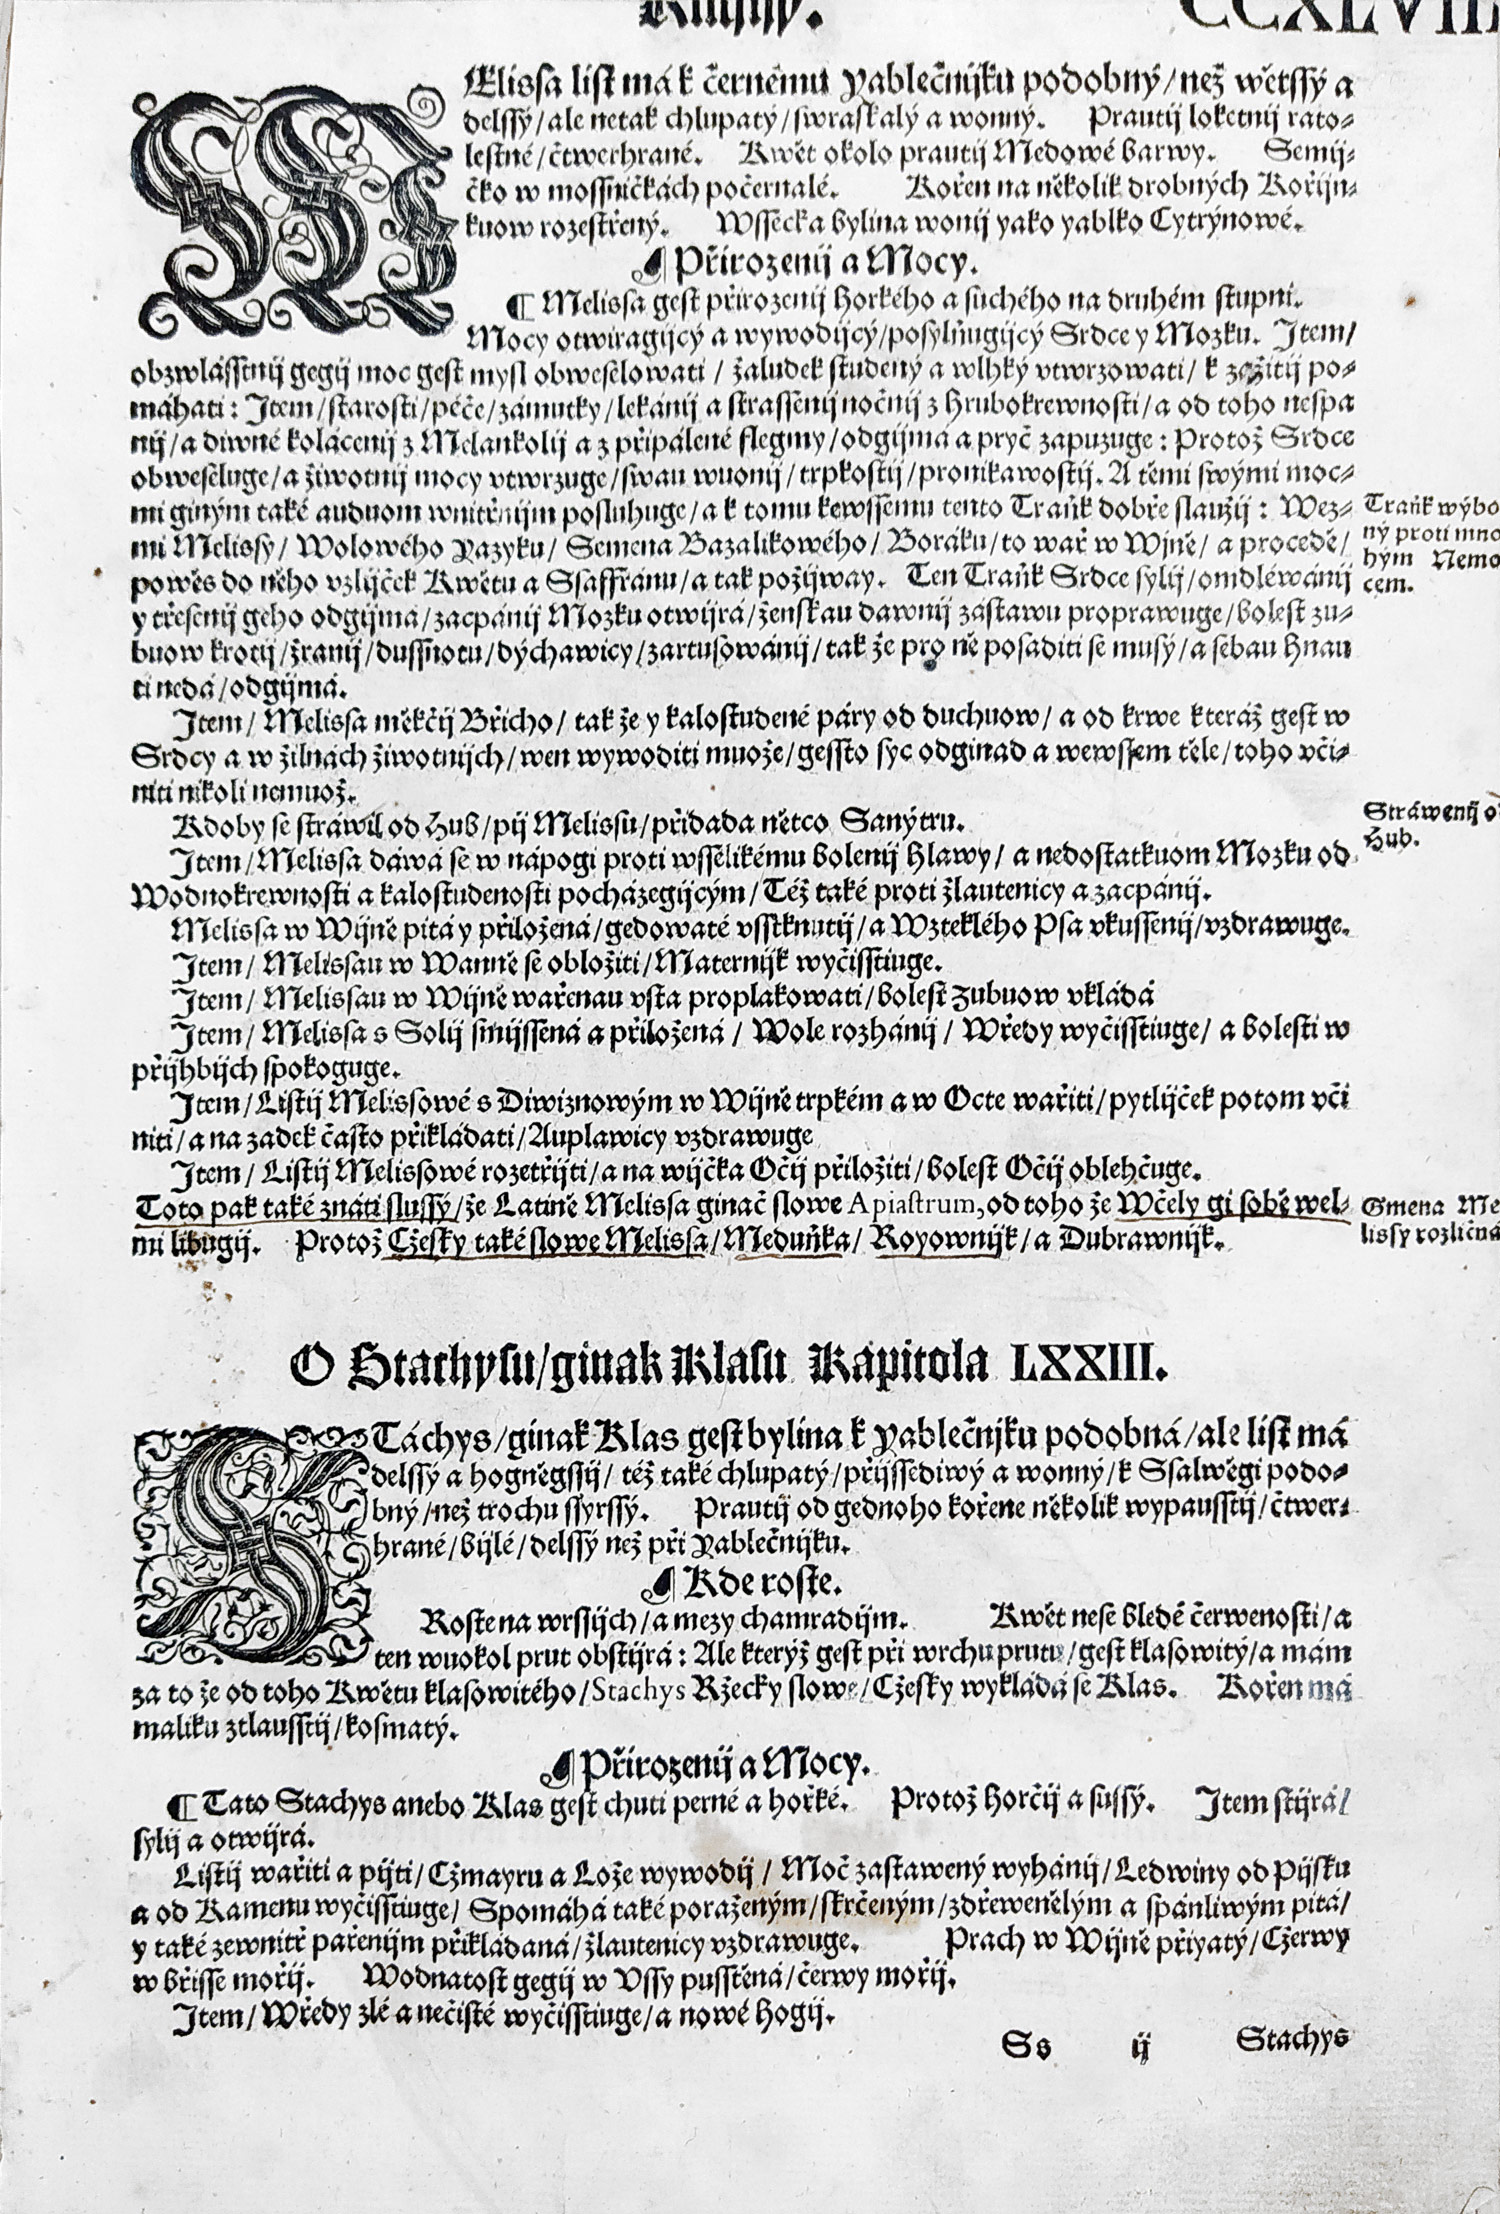 Knihy. CCXLVIII
MElissa list má k černému Yablečnijku podobný/než wětssý a
delssý/ale netak chlupatý/swraskalý a wonný. Prautij loketnij rato⸗
lestné/čtwerhrané. Kwět okolo prautij Medowé barwy. Semij⸗
čko w mossničkách počernalé. Kořen na několik drobných Kořijn⸗
kuow rozestřený. Wssecka bylina wonij yako yablko Cytrýnowé.
¶ Přirozenij a Mocy.
¶ Melissa gest přirozenij horkého a suchého na druhém stupni.
Mocy otwiragijcý a wywodijcý/posylňugijcý Srdce y Mozku. Item/
obzwlásstnij gegij moc gest mysl obweselowati / žaludek studený a wlhký vtwrzowati/ k zažitij po⸗
máhati: Item/starosti/péče/zámutky/lekánij a strassenij nočnij z Hrubokrewnosti/a od toho nespa
nij/a diwné kolácenij z Melankolij a z připálené flegmy/odgijmá a pryč zapuzuge: Protož Srdce
obweseluge/a žiwotnij mocy vtwrzuge/swau wuonij/trpkostij/pronikawostij. A těmi swými moc⸗
mi giným také auduom wnitřnijm posluhuge/a k tomu kewssemu tento Traňk dobře slaužij: Wez⸗
mi Melissy/ Wolowého Yazyku/ Semena Bazalikowého/ Boráku/to wař w Wijně/ a procedě/
powěs do něho vzlijček Kwětu a Ssaffránu/a tak požijway. Ten Traňk Srdce sylij/omdléwánij
y třesenij geho odgijmá/zacpánij Mozku otwijrá/ženskau dawnij zástawu proprawuge/bolest zu⸗
buow krotij/žranij/dussnotu/dýchawicy/zartusowánij/tak že pro ně posaditi se musý/a sebau hnau
ti nedá/odgijmá.
Traňk wýbo
ný proti mno
hým Nemo
cem.
Item/ Melissa měkčij Břicho/ tak že y kalostudené páry od duchuow/ a od krwe kteráž gest w
Srdcy a w žilnách žiwotnijch/wen wywoditi muože/gessto syc odginad a wewssem těle/toho vči⸗
niti nikoli nemuož.
Kdoby se stráwil od Hub/pij Melissu/přidada nětco Sanýtru.
Stráwenij od
Hub.
Item/Melissa dáwá se w nápogi proti wsselikému bolenij Hlawy/ a nedostatkuom Mozku od
Wodnokrewnosti a kalostudenosti pocházegijcým/Též také proti žlautenicy a zacpánij.
Melissa w Wijně pitá y přiložená/gedowaté vsstknutij/a Wzteklého Psa vkussenij/vzdrawuge.
Item/ Melissau w Wanně se obložiti/Maternijk wyčisstiuge.
Item/ Melissau w Wijně wařenau vsta proplakowati/bolest Zubuow vkládá
Item/ Melissa s Solij smijssená a přiložená/ Wole rozhánij/ Wředy wyčisstiuge/ a bolesti w
přijhbijch spokoguge.
Item/Listij Melissowé s Diwiznowým w Wijně trpkém a w Octe wařiti/pytlijček potom vči
niti/a na zadek často přikládati/Auplawicy vzdrawuge
Item/ Listij Melissowé rozetřijti/a na wijčka Očij přiložiti/bolest Očij oblehčuge.
Toto pak také znáti slussý/že Latině Melissa ginač slowe Apiastrum,od toho že Wčely gi sobě wel⸗
mi libugij. Protož Cžesky také slowe Melissa/Meduňka/ Royownijk/a Dubrawnijk.
Gmena Me
lissy rozličná
O Stachysu/ginak Klasu Kapitola LXXIII.
STáchys/ginak Klas gest bylina k Yablečnijku podobná/ale list má
delssý a hogněgssij/ též také chlupatý/přijssediwý a wonný/k Ssalwěgi podo⸗
bný/než trochu ssyrssý. Prautij od gednoho kořene několik wypausstij/čtwer⸗
hrané/bijlé/delssý než při Yablečnijku.
¶ Kde roste.
Roste na wrssijch/a mezy chamradijm. Kwět nese bledé čerwenosti/a
ten wuokol prut obstijrá: Ale kterýž gest při wrchu prutu/gest klasowitý/a mám
za to že od toho Kwětu klasowitého/Stachys Ržecky slowe/Cžesky wykládá se Klas. Kořen má
maliku ztlausstij/kosmatý.
¶ Přirozenij a Mocy.
¶ Tato Stachys anebo Klas gest chuti perné a hořké. Protož horčij a sussý. Item stijrá/
sylij a otwijrá.
Listij wařiti a pijti/Cžmayru a Lože wywodij / Moč zastawený wyhánij/Ledwiny od Pijsku
a od Kamenu wyčisstiuge/ Spomáhá také poraženým/skrčeným/zdřewenělým a spánliwým pitá/
y také zewnitř pařenijm přikládaná/žlautenicy vzdrawuge. Prach w Wijně přiyatý/Cžerwy
w břisse mořij. Wodnatost gegij w Vssy pusstěná/čerwy mořij.
Item/Wředy zlé a nečisté wyčisstiuge/a nowé hogij.
Ss ij Stachys